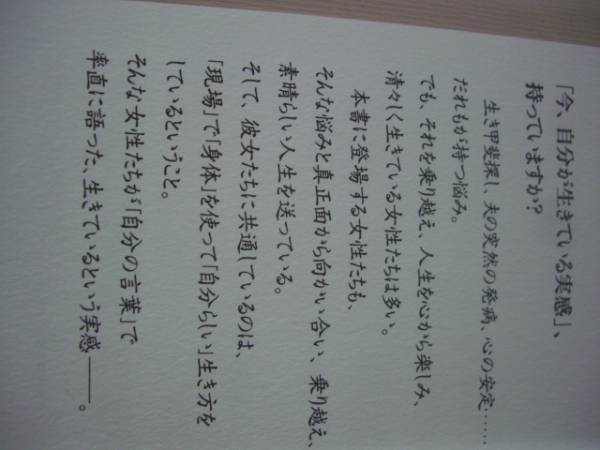 「今、自分が生きている実感」、
持っていますか？
生き甲斐探し、夫の突然の発病、心の安定……
だれもが持つ悩み。
でも、それを乗り越え、人生を心から楽しみ、
清々しく生きている女性たちは多い。
本書に登場する女性たちも、
そんな悩みと真正面から向かい合い、乗り越え、
素晴らしい人生を送っている。
そして、彼女たちに共通しているのは、
「現場」で「身体」を使って「自分らしい」生き方を
しているということ。
そんな女性たちが「自分の言葉」で
率直に語った、生きているという実感――。